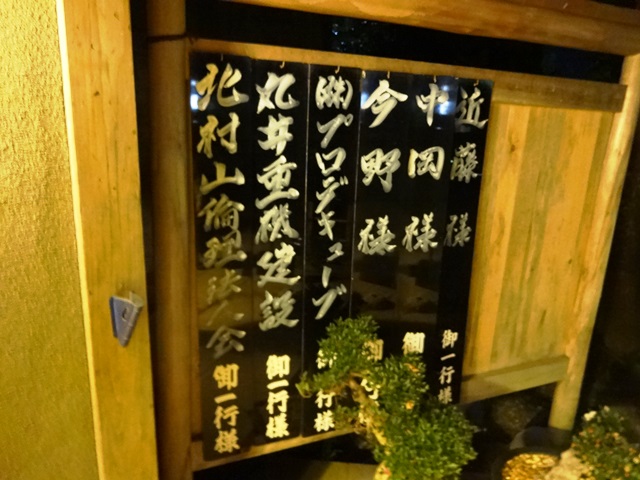 近藤様 御一行様
中岡様 御
今野様 御一行様
㈱プロデキューブ 御一行様
丸井重機建設 御一行様
北村山倫理法人会 御一行様